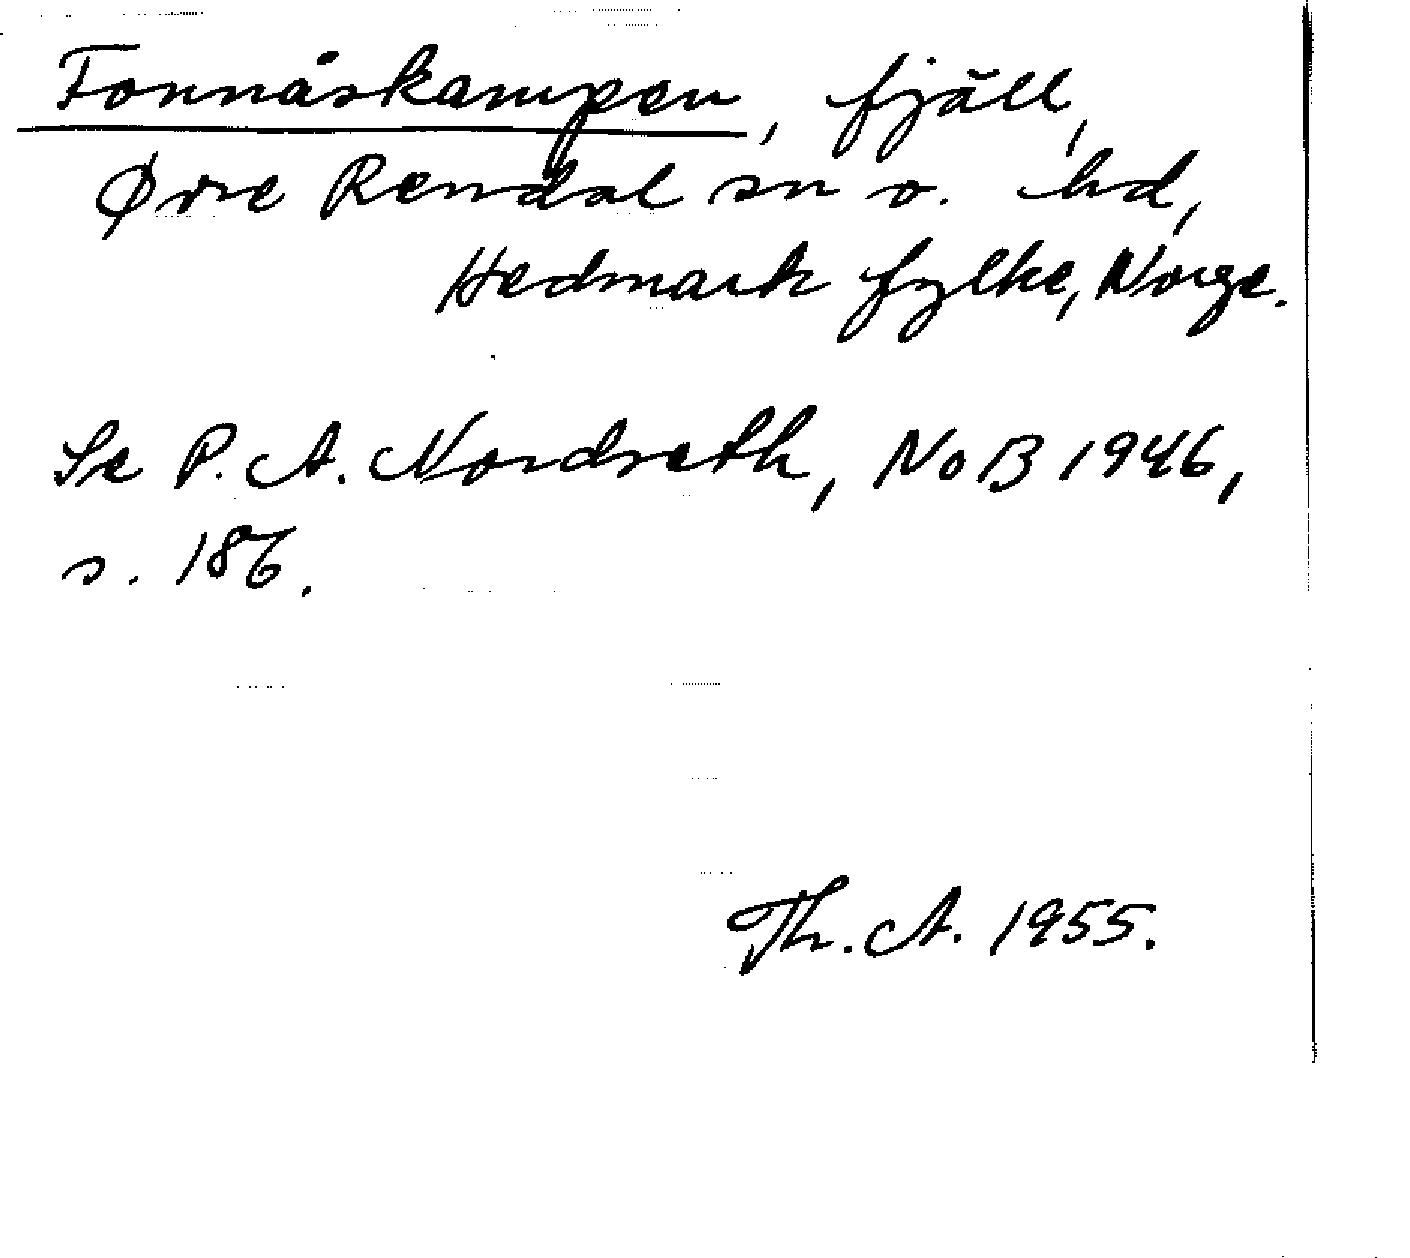 Fonnåskampen, fjäll,
Øvre Rendal sn o. hd,
Hedmark fylke, Norge.
Se P. A. Nordseth, NoB 1946,
s. 186.
Th. A. 1955.